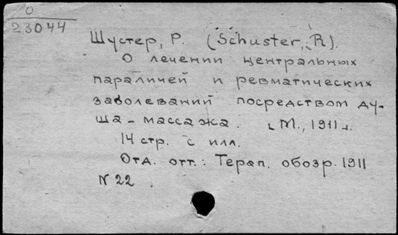 0
23044
Шустер, Р. (Schuster, R).
О лечении центральных
параличей и ревматических
заболеваний посредством ду-
ша-массажа. [М., 1911].
14 стр. с илл.
Отд. отт.: Терап. обозр. 1911
N 22.